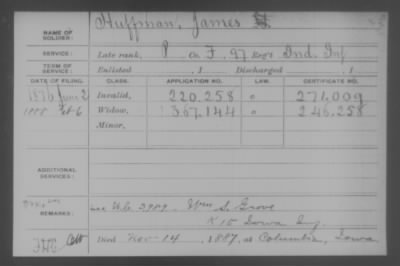 NAME OF SOLDIER: Huffman, James
SERVICE: Late rank, P Co. F, 97 Reg't Ind. Inf
TERM OF SERVICE: Enlisted , 1 Discharged , 1
DATE OF FILING. CLASS. APPLICATION NO. LAW. CERTIFICATE NO.
1876 June 2 Invalid, 220.258 271,009
1888 6 Widow, 367,144 246.258
Minor,
ADDITIONAL SERVICES:
REMARKS: see W.C. 3989. Wm S. Grove
K 15 Iowa Inf.
Died Nov 14, 1887, at Columbia, Iowa